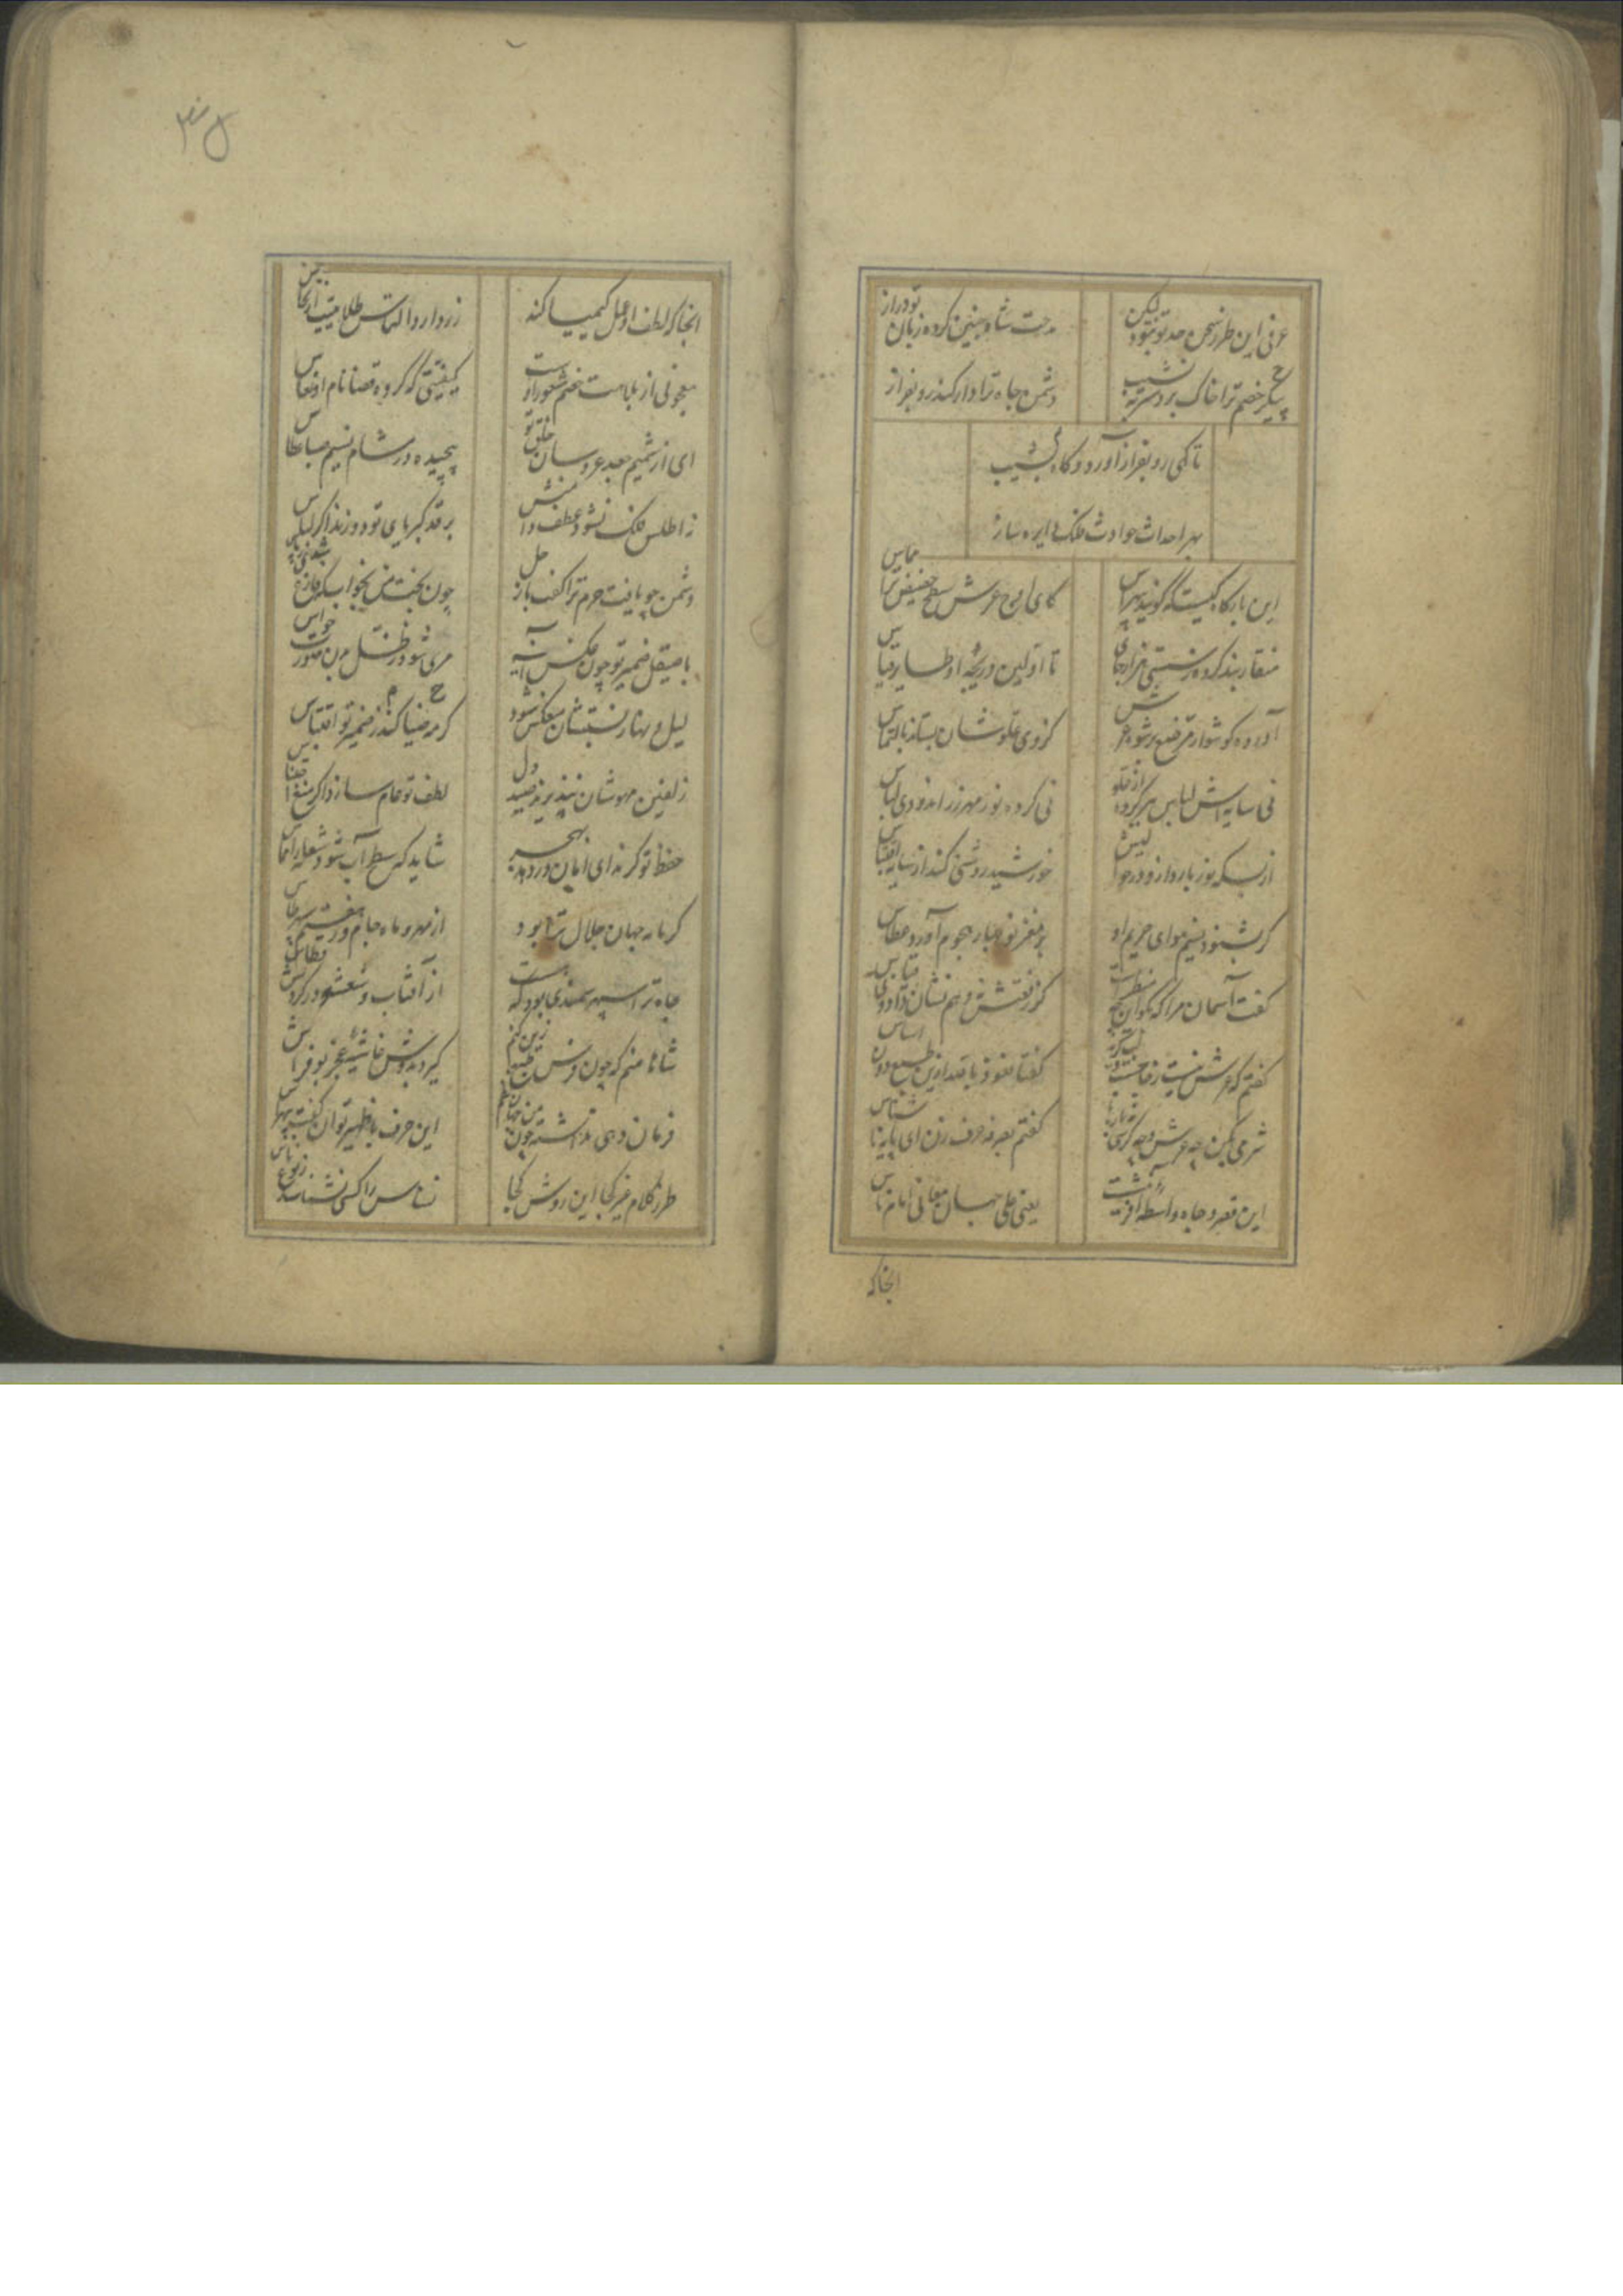 عرفی این طرز سخن حد تو نبود لیکن
مدحت شاه چنین کرده زبان تو دراز
خصم ترا خاک برد سر به نشیب
دشمن جاه ترا دار کند رو بفراز
تا کهی رو بفراز آورد و گاه نشیب
بهر احداث حوادث فلک دایره ساز
این بارگاه کیست که گویند بی هراس
کای اوج عرش سطح حضیض ترا مماس
منقار بند کرده ز سستی هزار جای
تا اولین دریچه او طایر قیاس
آورده گوشوار مرصع ز شرم عرش
کز وی علو شان بستاند بالتماس
نی سایه اش لباس بر کرده از
نی کرده نور مهر زر اندود لباس
از بسکه نور بارد ازو در حوالیش
خورشید روشنی کند از سایه اقتباس
گر بشنود نسیم هوای حریم او
بر مغز نوبهار هجوم آورد عطاس
گفت آسمان مرا که بگو این چه منظر است
کز رفعتش نه وهم نشان داد و نی قیاس
گفتم که عرش نیست
گفتا نعوذ بالله ازین طبع دون اساس
شرمی بکن چه عرش و چه کرسی
گفتم بصرفه حرف زن ای پایه ناشناس
این قصر و جاه واسطه آفرینش است
یعنی علی جهان معانی امام ناس
انجا که
انجا که لطف او عمل کیمیا کند
زر دارد التماس طلا گشتن از نحاس
معجونی از بلاهت خصم شعور اوست
کیفیتی که کرده قضا نام او نعاس
ای از شمیم جعد عروسان خلق تو
پیچیده در مشام نسیم صبا عطاس
ز اطلس فلک نشود عطف دامنش
بر قد کبریای تو دوزند اگر لباس
دشمن چو یافت حزم ترا گفت باز حل
چون بخت من بخواب که فارغ شدی ز پاس
با صیقل ضمیر تو چون عکس آینه
مرئی شود ز ظل بدن صورت حواس
لیل و نهار نسبتشان منعکس شود
گر مه ضیا کند ز ضمیر تو اقتباس
زلفین مهوشان نپذیرند صید دل
لطف تو عام سازد اگر منع
حفظ تو گر ندای امان در دهد به بحر
شاید که سطح آب شود شعله را مماس
گر مایده جهان جلال ترا بود
از مهر و ماه جام و ز هفتم سپهر طاس
جاه ترا سپهر سمندی بود که هست
از آفتاب و شعشعه در گردنش قطاس
شاها منم که چون فرس طبع زین کنم
گیرد بدوش غاشیه عجز بوفراس
فرمان دهی نداشته چون من جهان نظم
این حرف با ظهیر توان گفت بی هراس
طرز کلام غیر کجا این روش کجا
نسناس را کسی نشناسد ز نوع ناس
۳۵